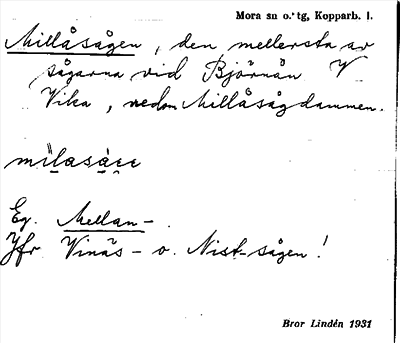 Mora sn o. tg, Kopparb. l.
Millåsågen, den mellersta av
sågarna vid Björnån V
Vika, nedom Millåsågdammen.
Eg. Mellan-.
Jfr Vinäs- o. Nist-sågen!
Bror Lindén 1931